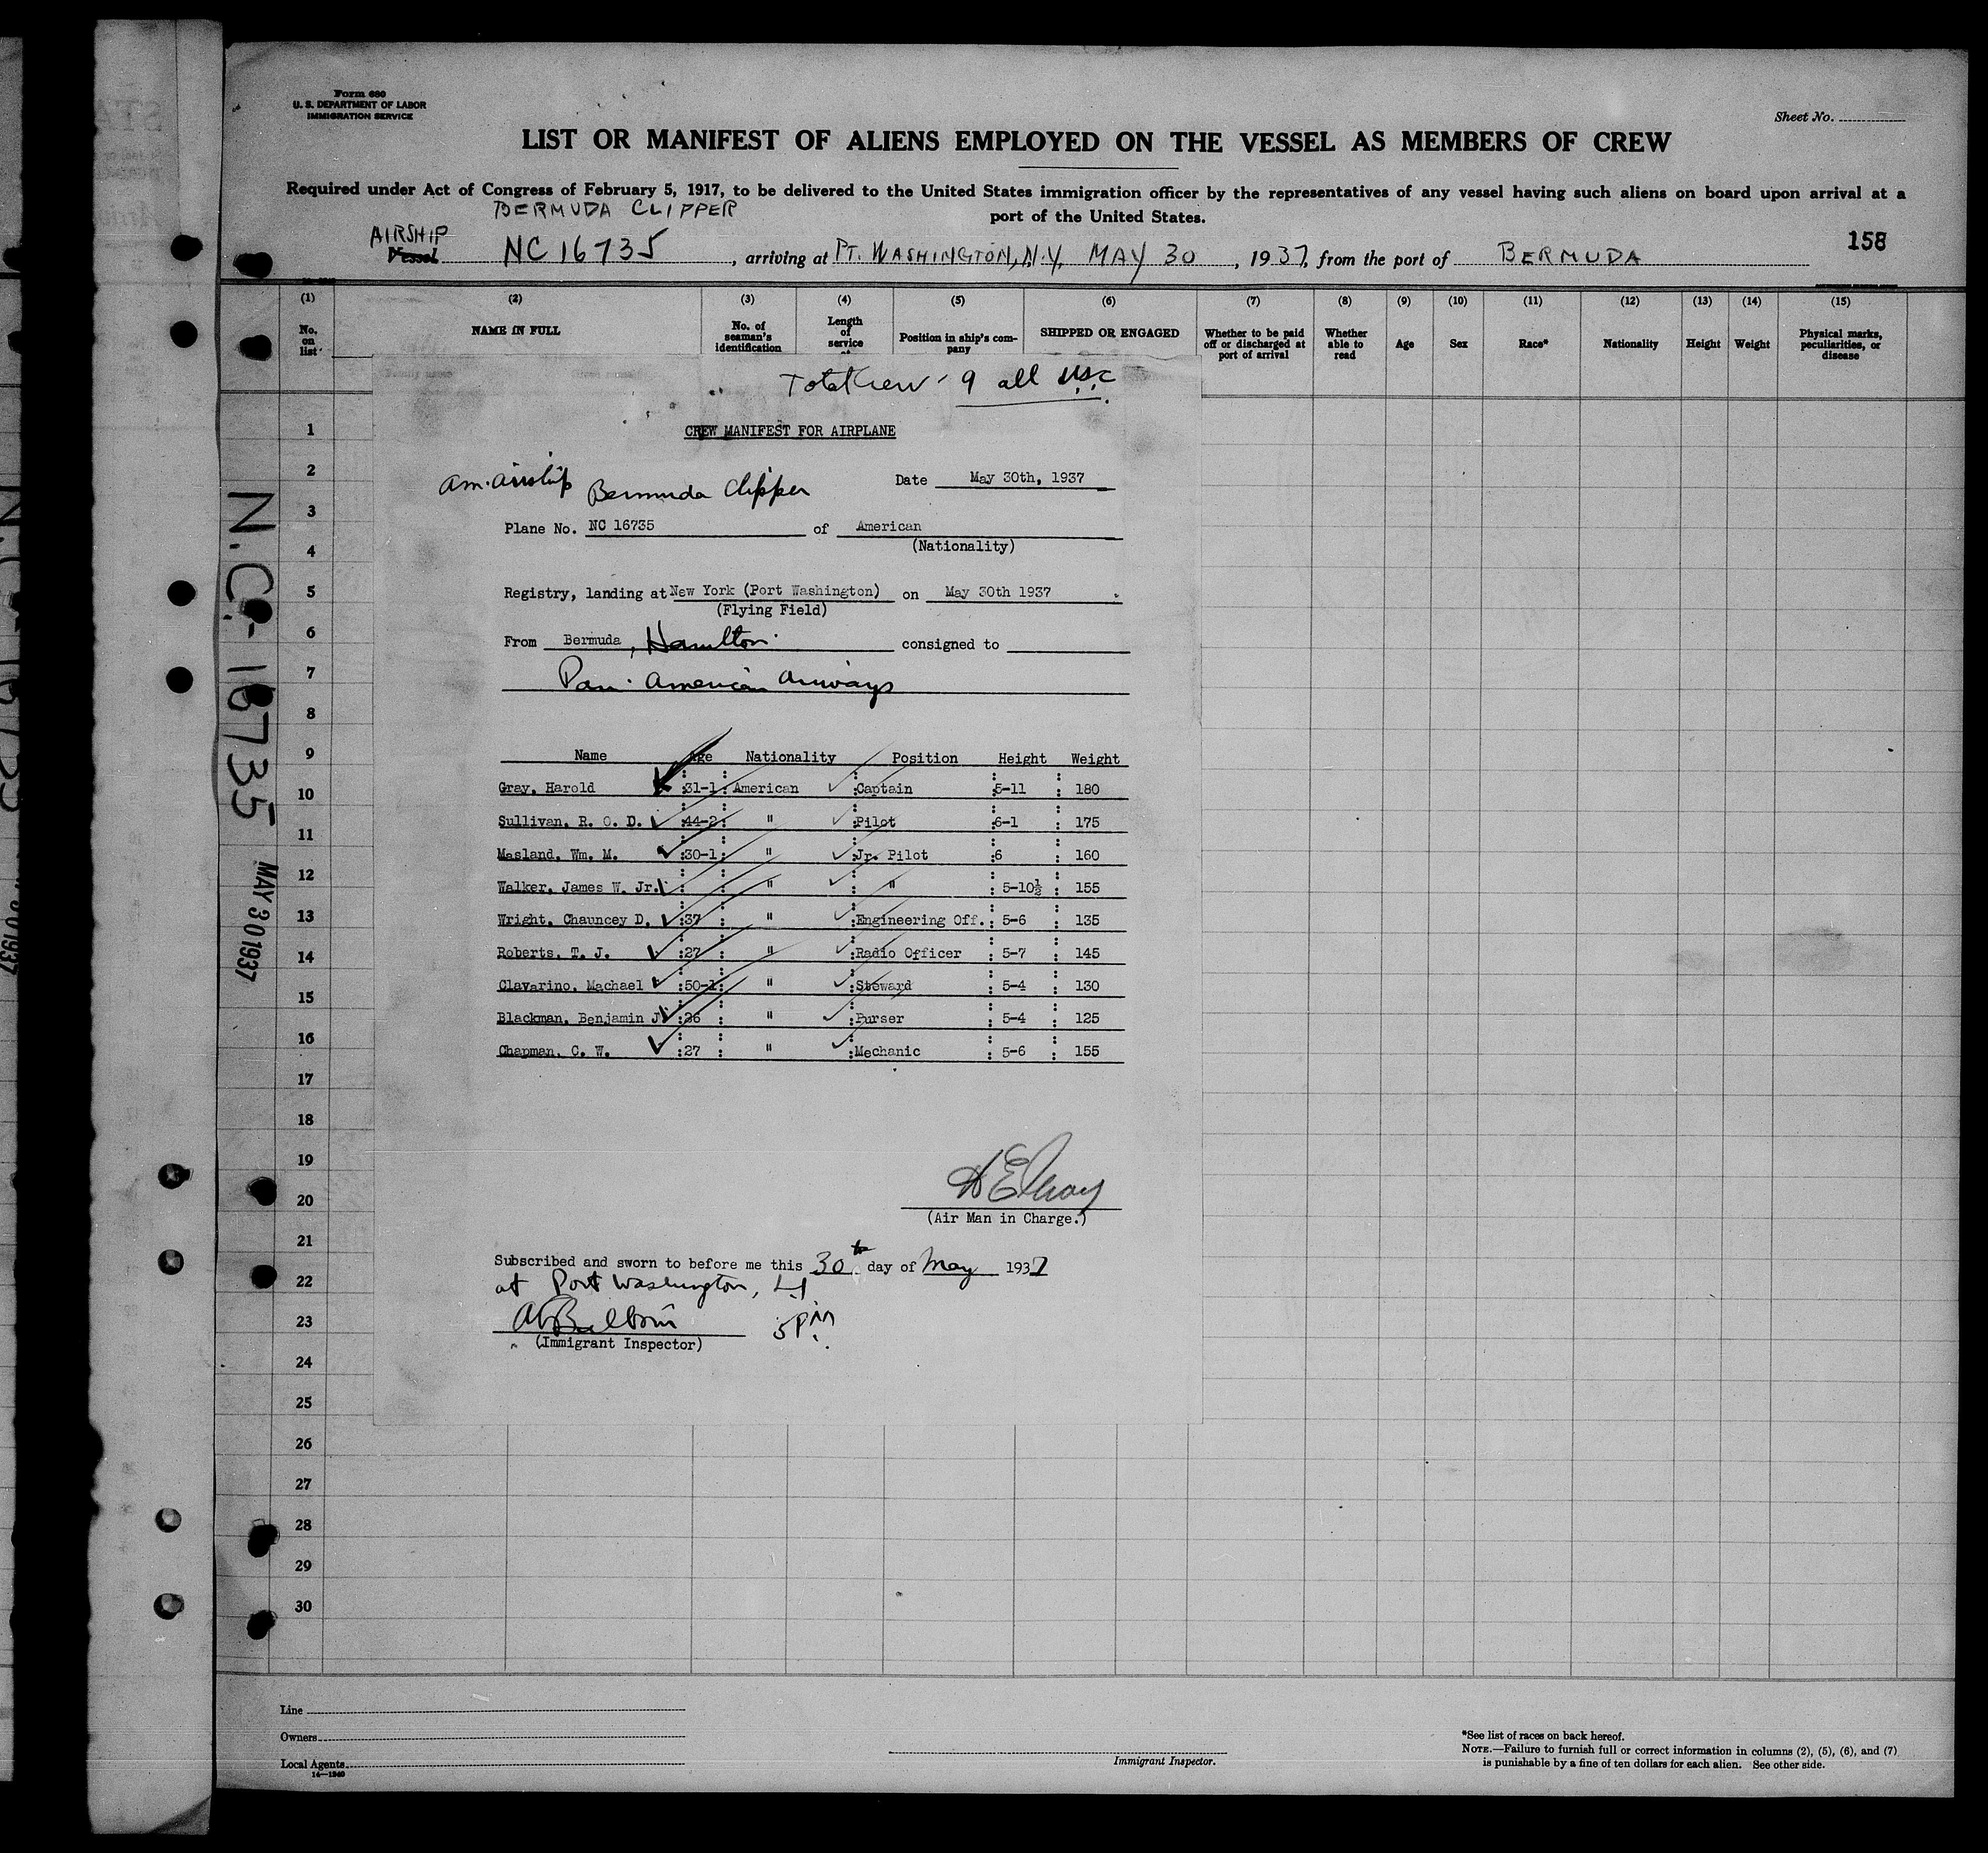 Form 680
U. S. DEPARTMENT OF LABOR
IMMIGRATION SERVICE
Sheet No.
LIST OR MANIFEST OF ALIENS EMPLOYED ON THE VESSEL AS MEMBERS OF CREW
Required under Act of Congress of February 5, 1917, to be delivered to the United States immigration officer by the representatives of any vessel having such aliens on board upon arrival at a
port of the United States.
BERMUDA CLIPPER
AIRSHIP
Vessel NC 16735, arriving at PT. WASHINGTON, N.Y. MAY 30, 1937, from the port of BERMUDA
158
(1) (2) (3) (4) (5) (6) (7) (8) (9) (10) (11) (12) (13) (14) (15)
No. on list NAME IN FULL No. of seaman's identification Length of service Position in ship's company SHIPPED OR ENGAGED Whether to be paid off or discharged at port of arrival Whether able to read Age Sex Race* Nationality Height Weight Physical marks, peculiarities, or disease
Total Crew - 9 all USC
CREW MANIFEST FOR AIRPLANE
Am. Airship Bermuda Clipper Date May 30th, 1937
Plane No. NC 16735 of American
(Nationality)
Registry, landing at New York (Port Washington) on May 30th 1937
(Flying Field)
From Bermuda, Hamilton consigned to
Pan American Airways
Name Age Nationality Position Height Weight
Gray, Harold :31-1: American :Captain :5-11 : 180
Sullivan, R. O. D. :44-2: " :Pilot :6-1 : 175
Masland, Wm. M. :30-1: " :Jr. Pilot :6 : 160
Walker, James W. Jr. : : " : " : 5-10½ : 155
Wright, Chauncey D. :37 : " :Engineering Off. : 5-6 : 135
Roberts, T. J. :27 : " :Radio Officer : 5-7 : 145
Clavarino, Machael :50-1: " :Steward : 5-4 : 130
Blackman, Benjamin J. :26 : " :Purser : 5-4 : 125
Chapman, C. W. :27 : " :Mechanic : 5-6 : 155
H E Gray
(Air Man in Charge.)
Subscribed and sworn to before me this 30th day of May 1937
at Port Washington, L.I.
5 PM
(Immigrant Inspector)
1
2
3
4
5
6
7
8
9
10
11
12
13
14
15
16
17
18
19
20
21
22
23
24
25
26
27
28
29
30
N.C.-16735 MAY 30 1937
Line
Owners
Local Agents
14—1240
Immigrant Inspector.
*See list of races on back hereof.
NOTE.—Failure to furnish full or correct information in columns (2), (5), (6), and (7)
is punishable by a fine of ten dollars for each alien. See other side.